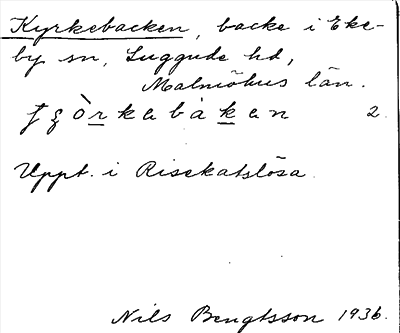 Kyrkebacken, backe i Eke-
by sn, Luggude hd,
Malmöhus län.
2.
Uppt. i Risekatslösa.
Nils Bengtsson 1936.